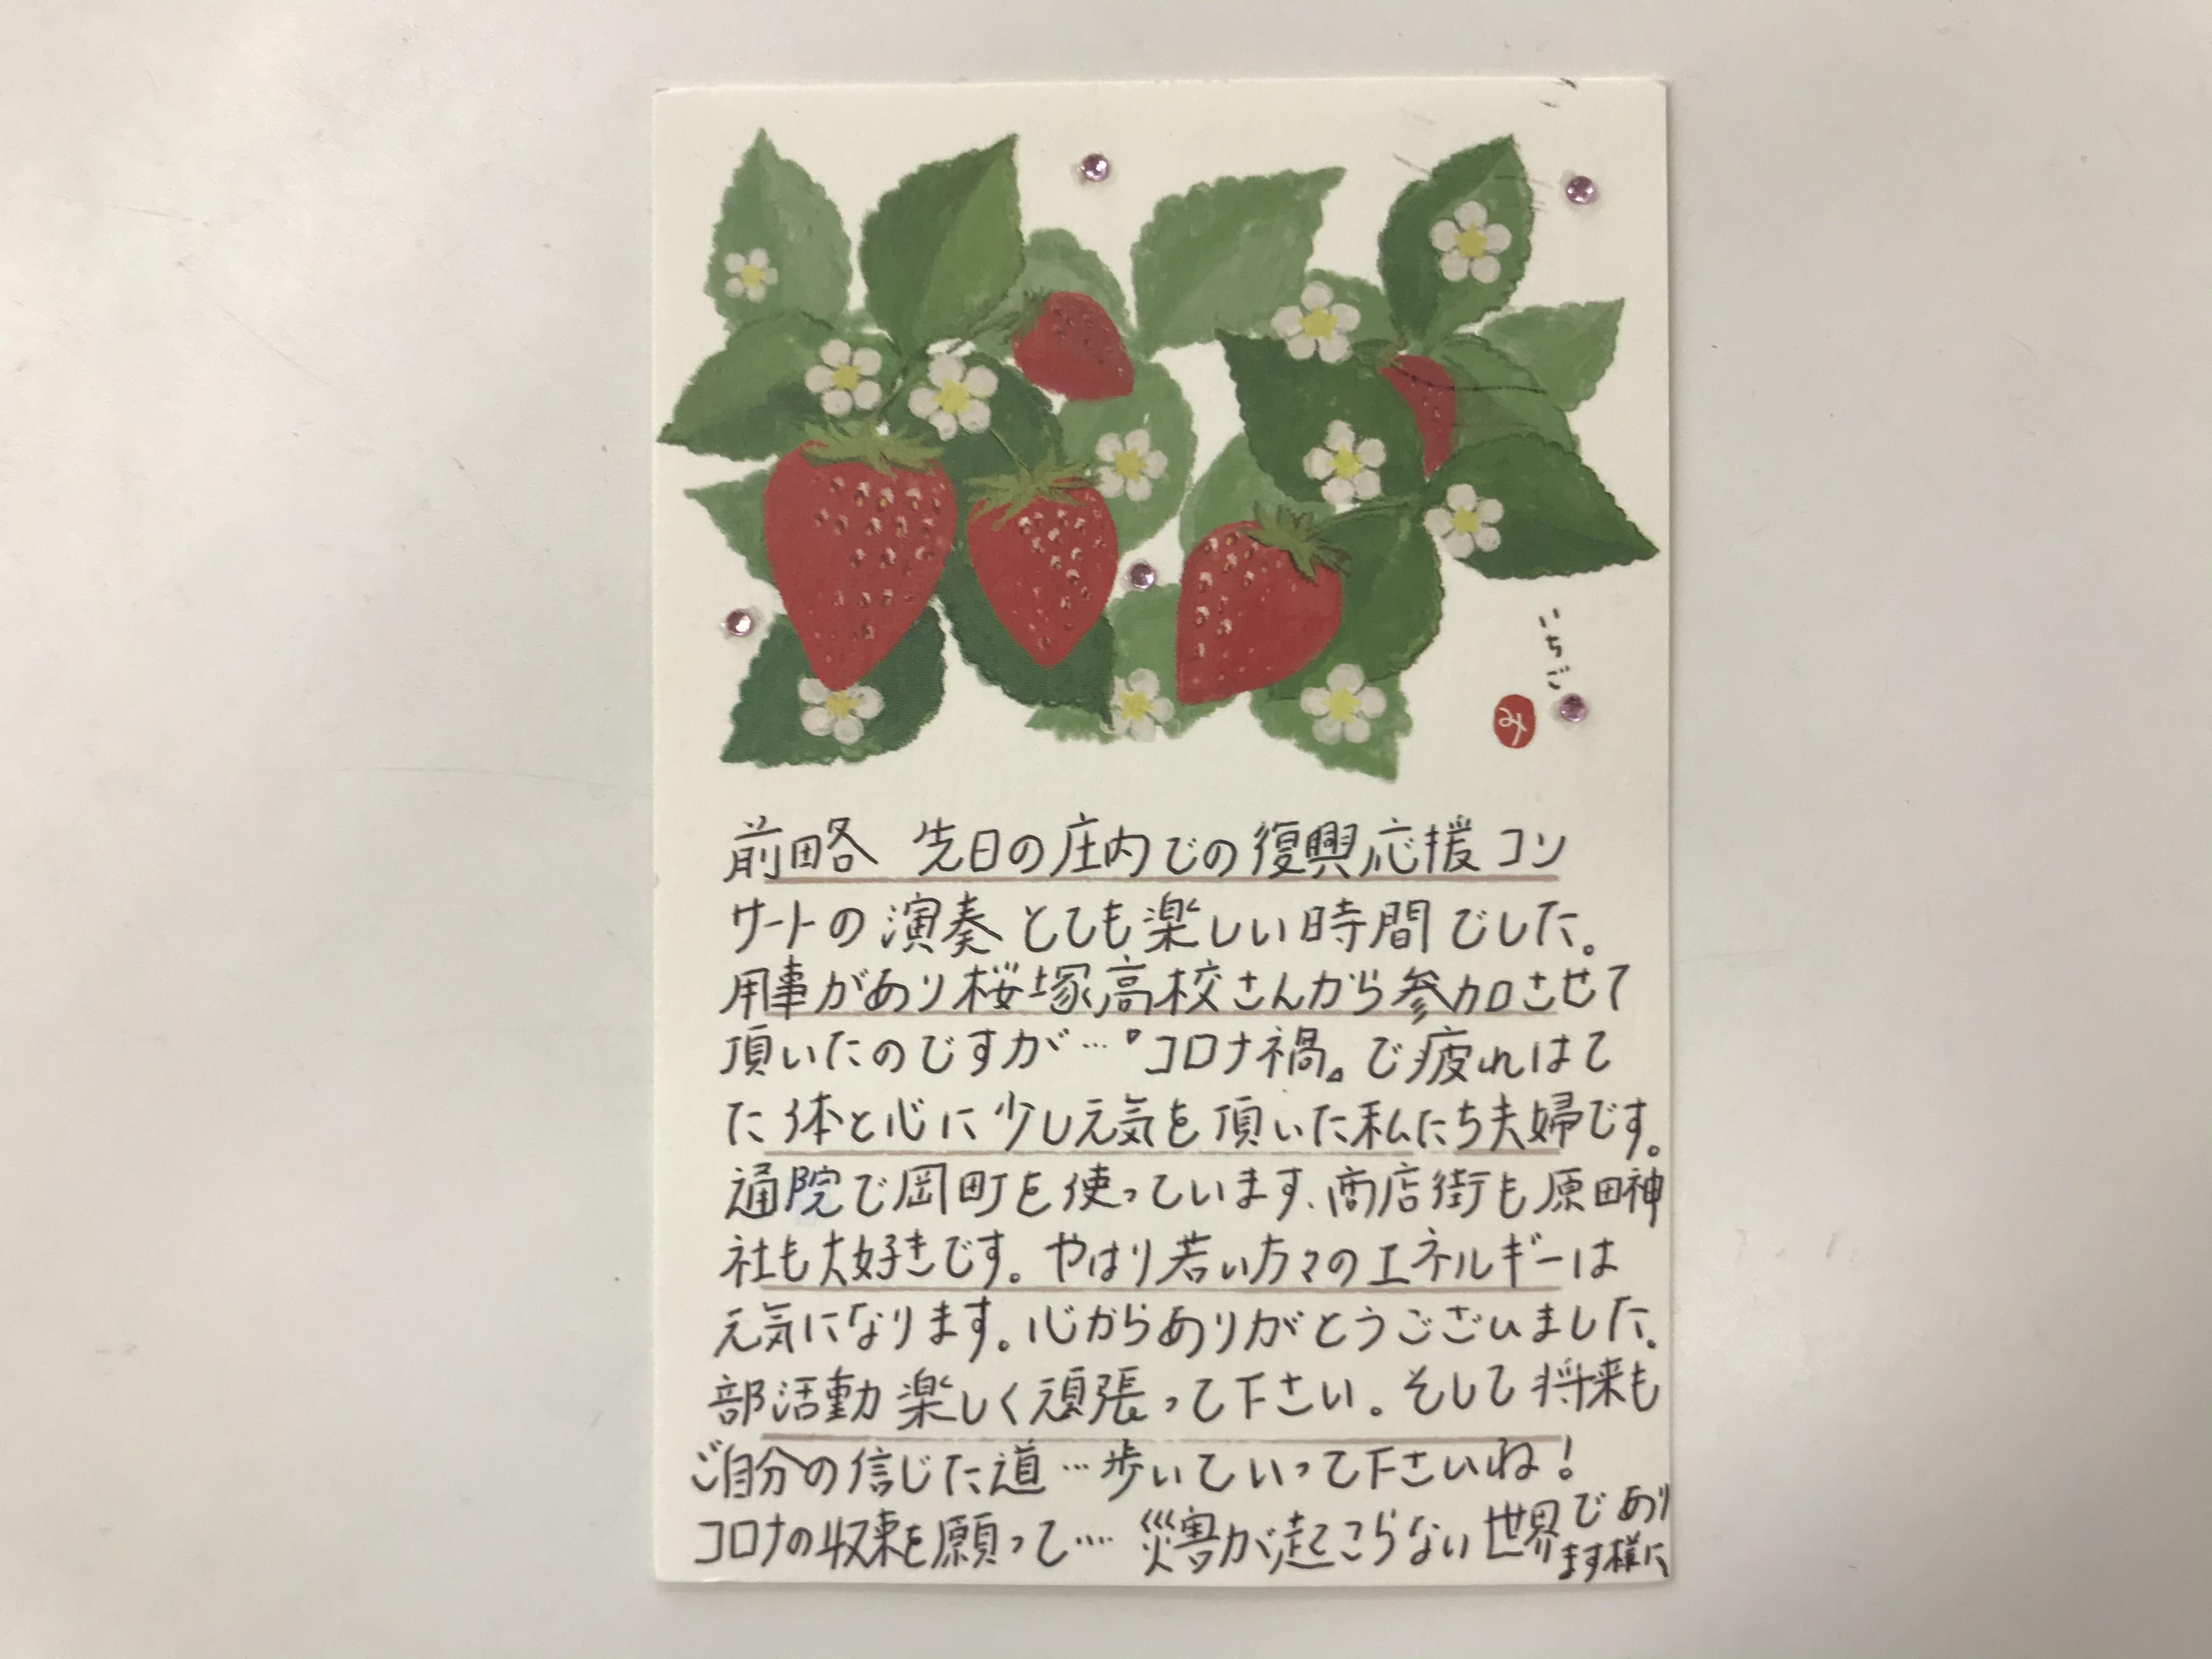 いちご
み
前略 先日の庄内での復興応援コン
サートの演奏とても楽しい時間でした。
用事があり桜塚高校さんから参加させて
頂いたのですが…『コロナ禍』で疲れはて
た体と心に少し元気を頂いた私たち夫婦です。
通院で岡町を使っています、商店街も原田神
社も大好きです。やはり若い方々のエネルギーは
元気になります。心からありがとうございました。
部活動楽しく頑張って下さい。そして将来も
ご自分の信じた道…歩いていって下さいね!
コロナの収束を願って…. 災害が起こらない世界であり
ます様に